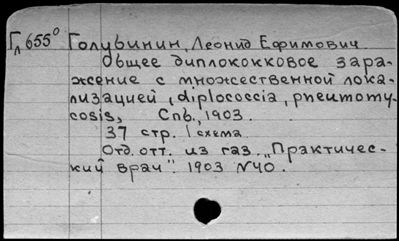 Гл 655⁰ Голубинин, Леонид Ефимович
Общее диплококковое зара-
жение с множественной лока-
лизацией, (diplococcia, pneumomy-
cosis), Спб., 1903.
37 стр. 1 схема
Отд. отт. из газ. „Практичес-
кий врач". 1903 №40.